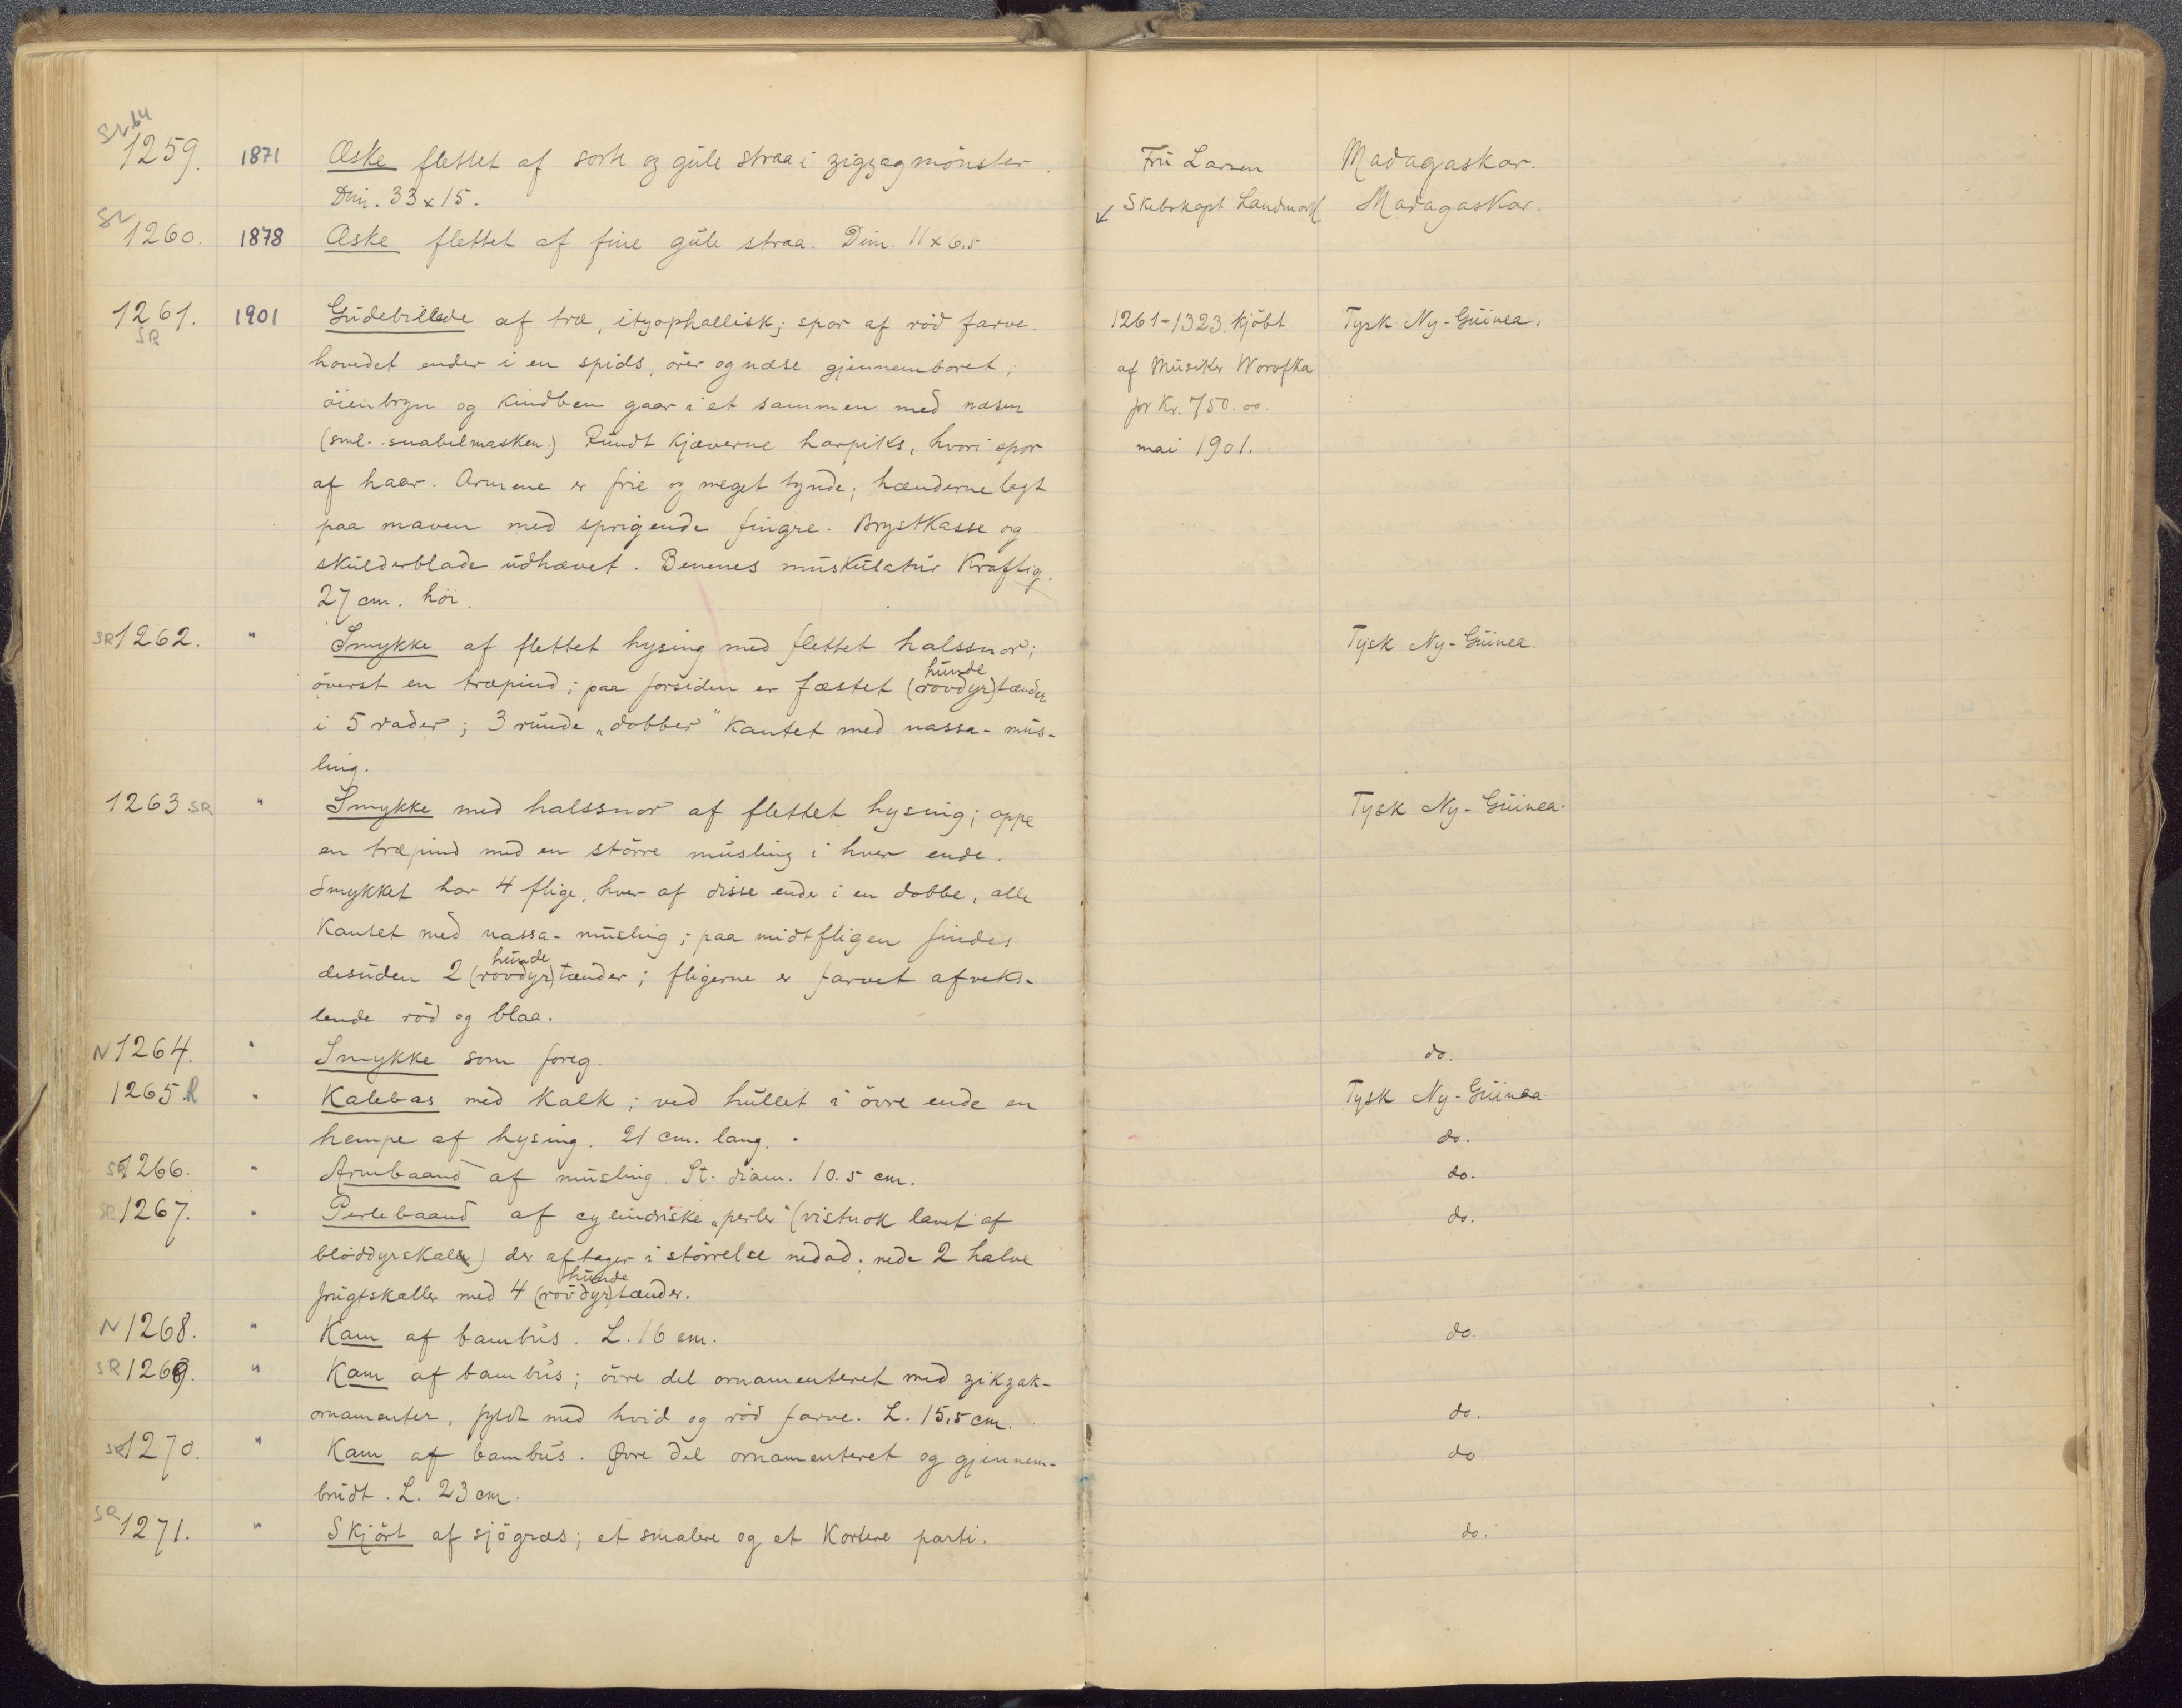 SN 64
1259. 1871 Æske flettet af sorte og gule straa i zigzagmönster. Fru Larsen Madagaskar.
Dim. 33 x 15. Skibskapt Landmark Madagaskar.
SN 1260. 1878 Æske flettet af fine gule straa. Dim. 11 x 6.5
1261. 1901 Gudebillede af træ, ityophallisk; spor af röd farve. 1261-1323. kjöbt Tysk Ny-Guinea.
SR
hovedet ender i en spids, örer og næse gjennemboret; af Musiker Worofka
öienbryn og kindben gaar i et sammen med næsen for Kr. 750.00.
(sml. snabelmasken.) Rundt kjæverne harpiks, hvori spor mai 1901.
af haar. Armene er frie og meget tynde; hænderne lagt
paa maven med sprigende fingre. Brystkasse og
skulderblade udhævet. Benenes muskulatur kraftig.
27 cm. höi.
SR 1262. " Smykke af flettet hysing med flettet halssnor; Tysk Ny-Guinea.
hunde
överst en træpind; paa forsiden er fæstet (rovdyr)tænder
i 5 rader; 3 runde „dobber" kantet med nassa-mus-
ling.
1263 SR " Smykke med halssnor af flettet hysing; oppe Tysk Ny-Guinea.
en træpind med en större musling i hver ende.
Smykket har 4 flige, hver af disse ender i en dobbe, alle
kantet med nassa-musling; paa midtfligen findes
hunde
desuden 2 (rovdyr)tænder; fligerne er farvet afveks-
lende röd og blaa.
N 1264. " Smykke som foreg. do.
1265. R " Kalebas med kalk; ved hullet i övre ende en Tysk Ny-Guinea
hempe af hysing. 21 cm. lang. do.
SR 1266. " Armbaand af musling St. diam. 10.5 cm. do.
SR 1267. " Perlebaand af cylindriske „perler" (vistnok lavet af do.
blöddyrskaller) der aftager i störrelse nedad; nede 2 halve
hunde
frugtskaller med 4 (rovdyr)tænder.
N 1268. " Kam af bambus. L. 16 cm. do.
SR 1269. " Kam af bambus; övre del ornamenteret med zikzak-
ornamenter, fyldt med hvid og röd farve. L. 15,5 cm. do.
SR 1270. " Kam af bambus. Øvre del ornamenteret og gjennem- do
brudt. L. 23 cm.
SR 1271. " Skjört af sjögræs; et smalere og et kortere parti. do.